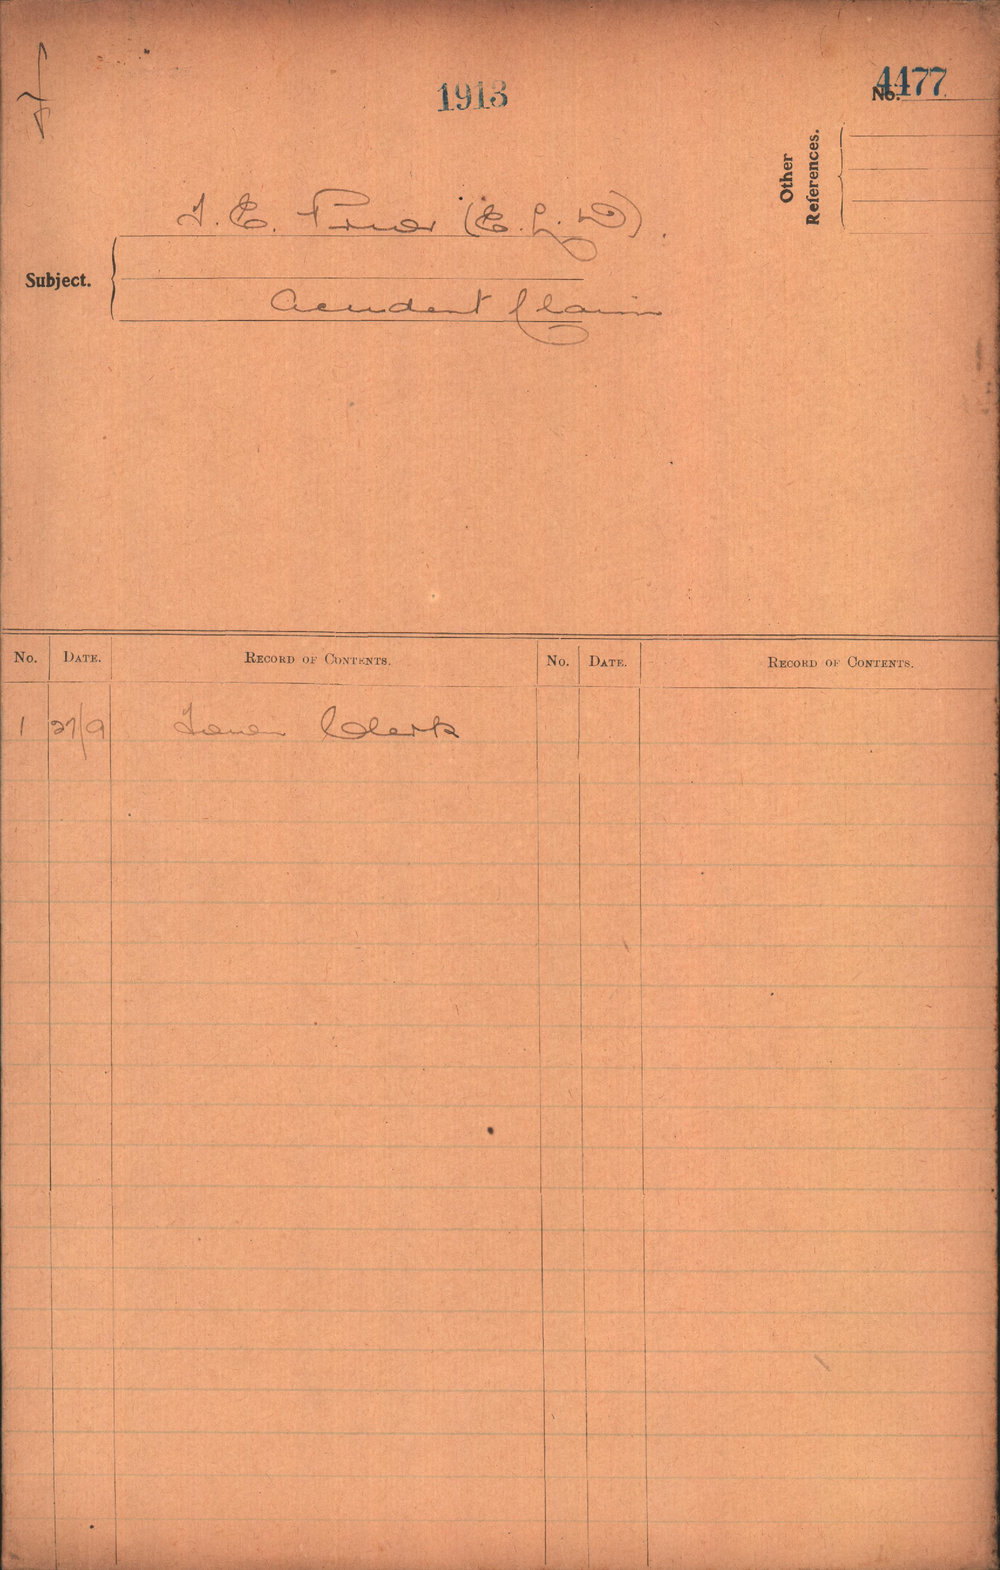 1913
No. 4477
Other References.
T. E. Prior (E. L. D).
Subject.
Accident Claim
No. DATE. RECORD OF CONTENTS. No. DATE. RECORD OF CONTENTS.
1 27/9 Town Clerk